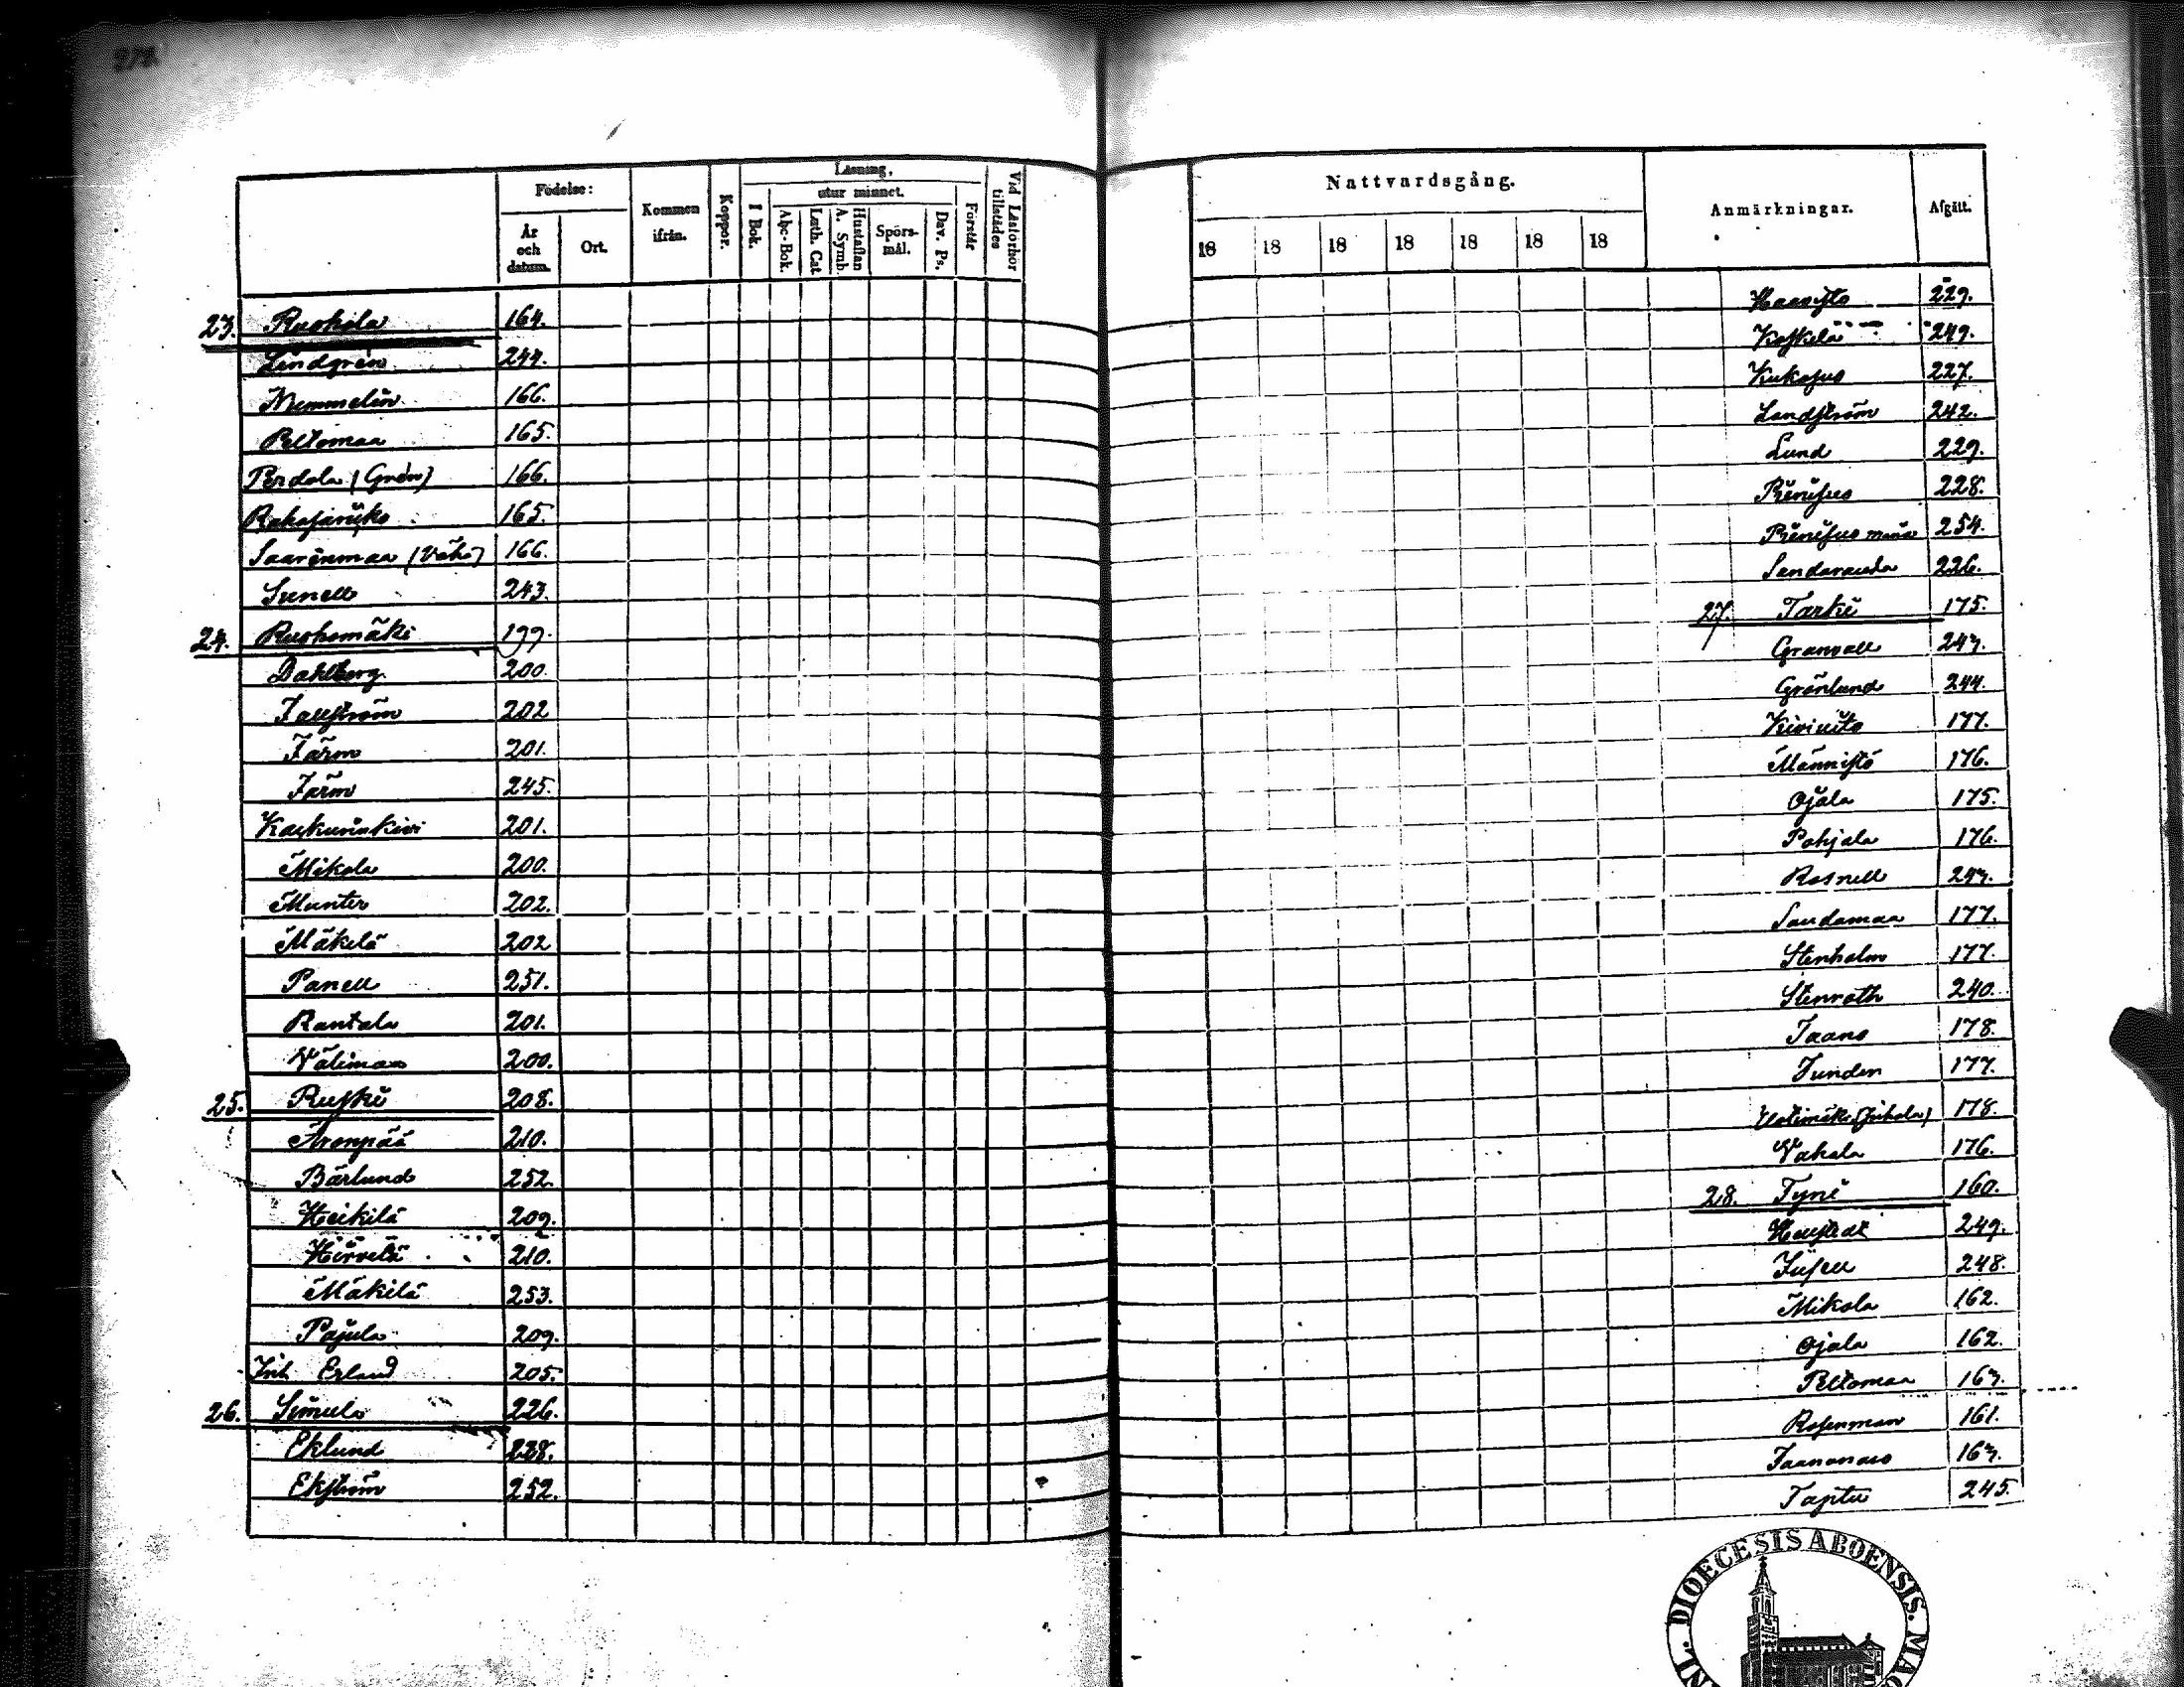 272.
Födelse:
År och datum.
Ort.
Kommen ifrån.
Koppor.
Läsning,
utur minnet.
I Bok.
Abc-Bok.
Luth. Cat
Hustaflan A. Symb.
Spörsmål.
Dav. Ps.
Förstår
Vid Läsförhör tillstädes
23. Ruskola 164.
Lindgren 244.
Nummelin 166.
Peltomaa 165.
Perdola (Grön) 166.
165.
Saarenmaa (Vähä) 166.
Sunell 243.
24. Ruohomäki 199.
Dahlberg 200.
Fallström 202
Färm 201.
Färm 245.
201.
Mikola 200.
Munter 202.
Mäkilä 202
Panell 251.
Rantala 201.
Välimaa 200.
25. Ruski 208.
Aronpää 210.
Bärlund 252.
Heikilä 209.
Hirvelä 210.
Mäkilä 253.
Pajula 209.
Inh. Erland 205.
26. Simula 226.
Eklund 228.
Ekström 252.
Nattvardsgång.
18 18 18 18 18 18 18
Anmärkningar.
Afgått.
Haavisto 229.
Koskela 249.
227.
Landström 242.
Lund 229.
228.
254.
226.
27. Tarki 175.
Granvall 247.
Grönlund 244.
Kiviniito 177.
Männistö 176.
Ojala 175.
Pohjala 176.
Rosnell 247.
Sandamaa 177.
Stenholm 177.
Stenroth 240.
178.
177.
178.
Vahala 176.
28. Tyni 160.
249.
248.
Mikola 162.
Ojala 162.
Peltomaa 167.
Rosenman 161.
167.
245
DIOECESIS ABOENSIS.